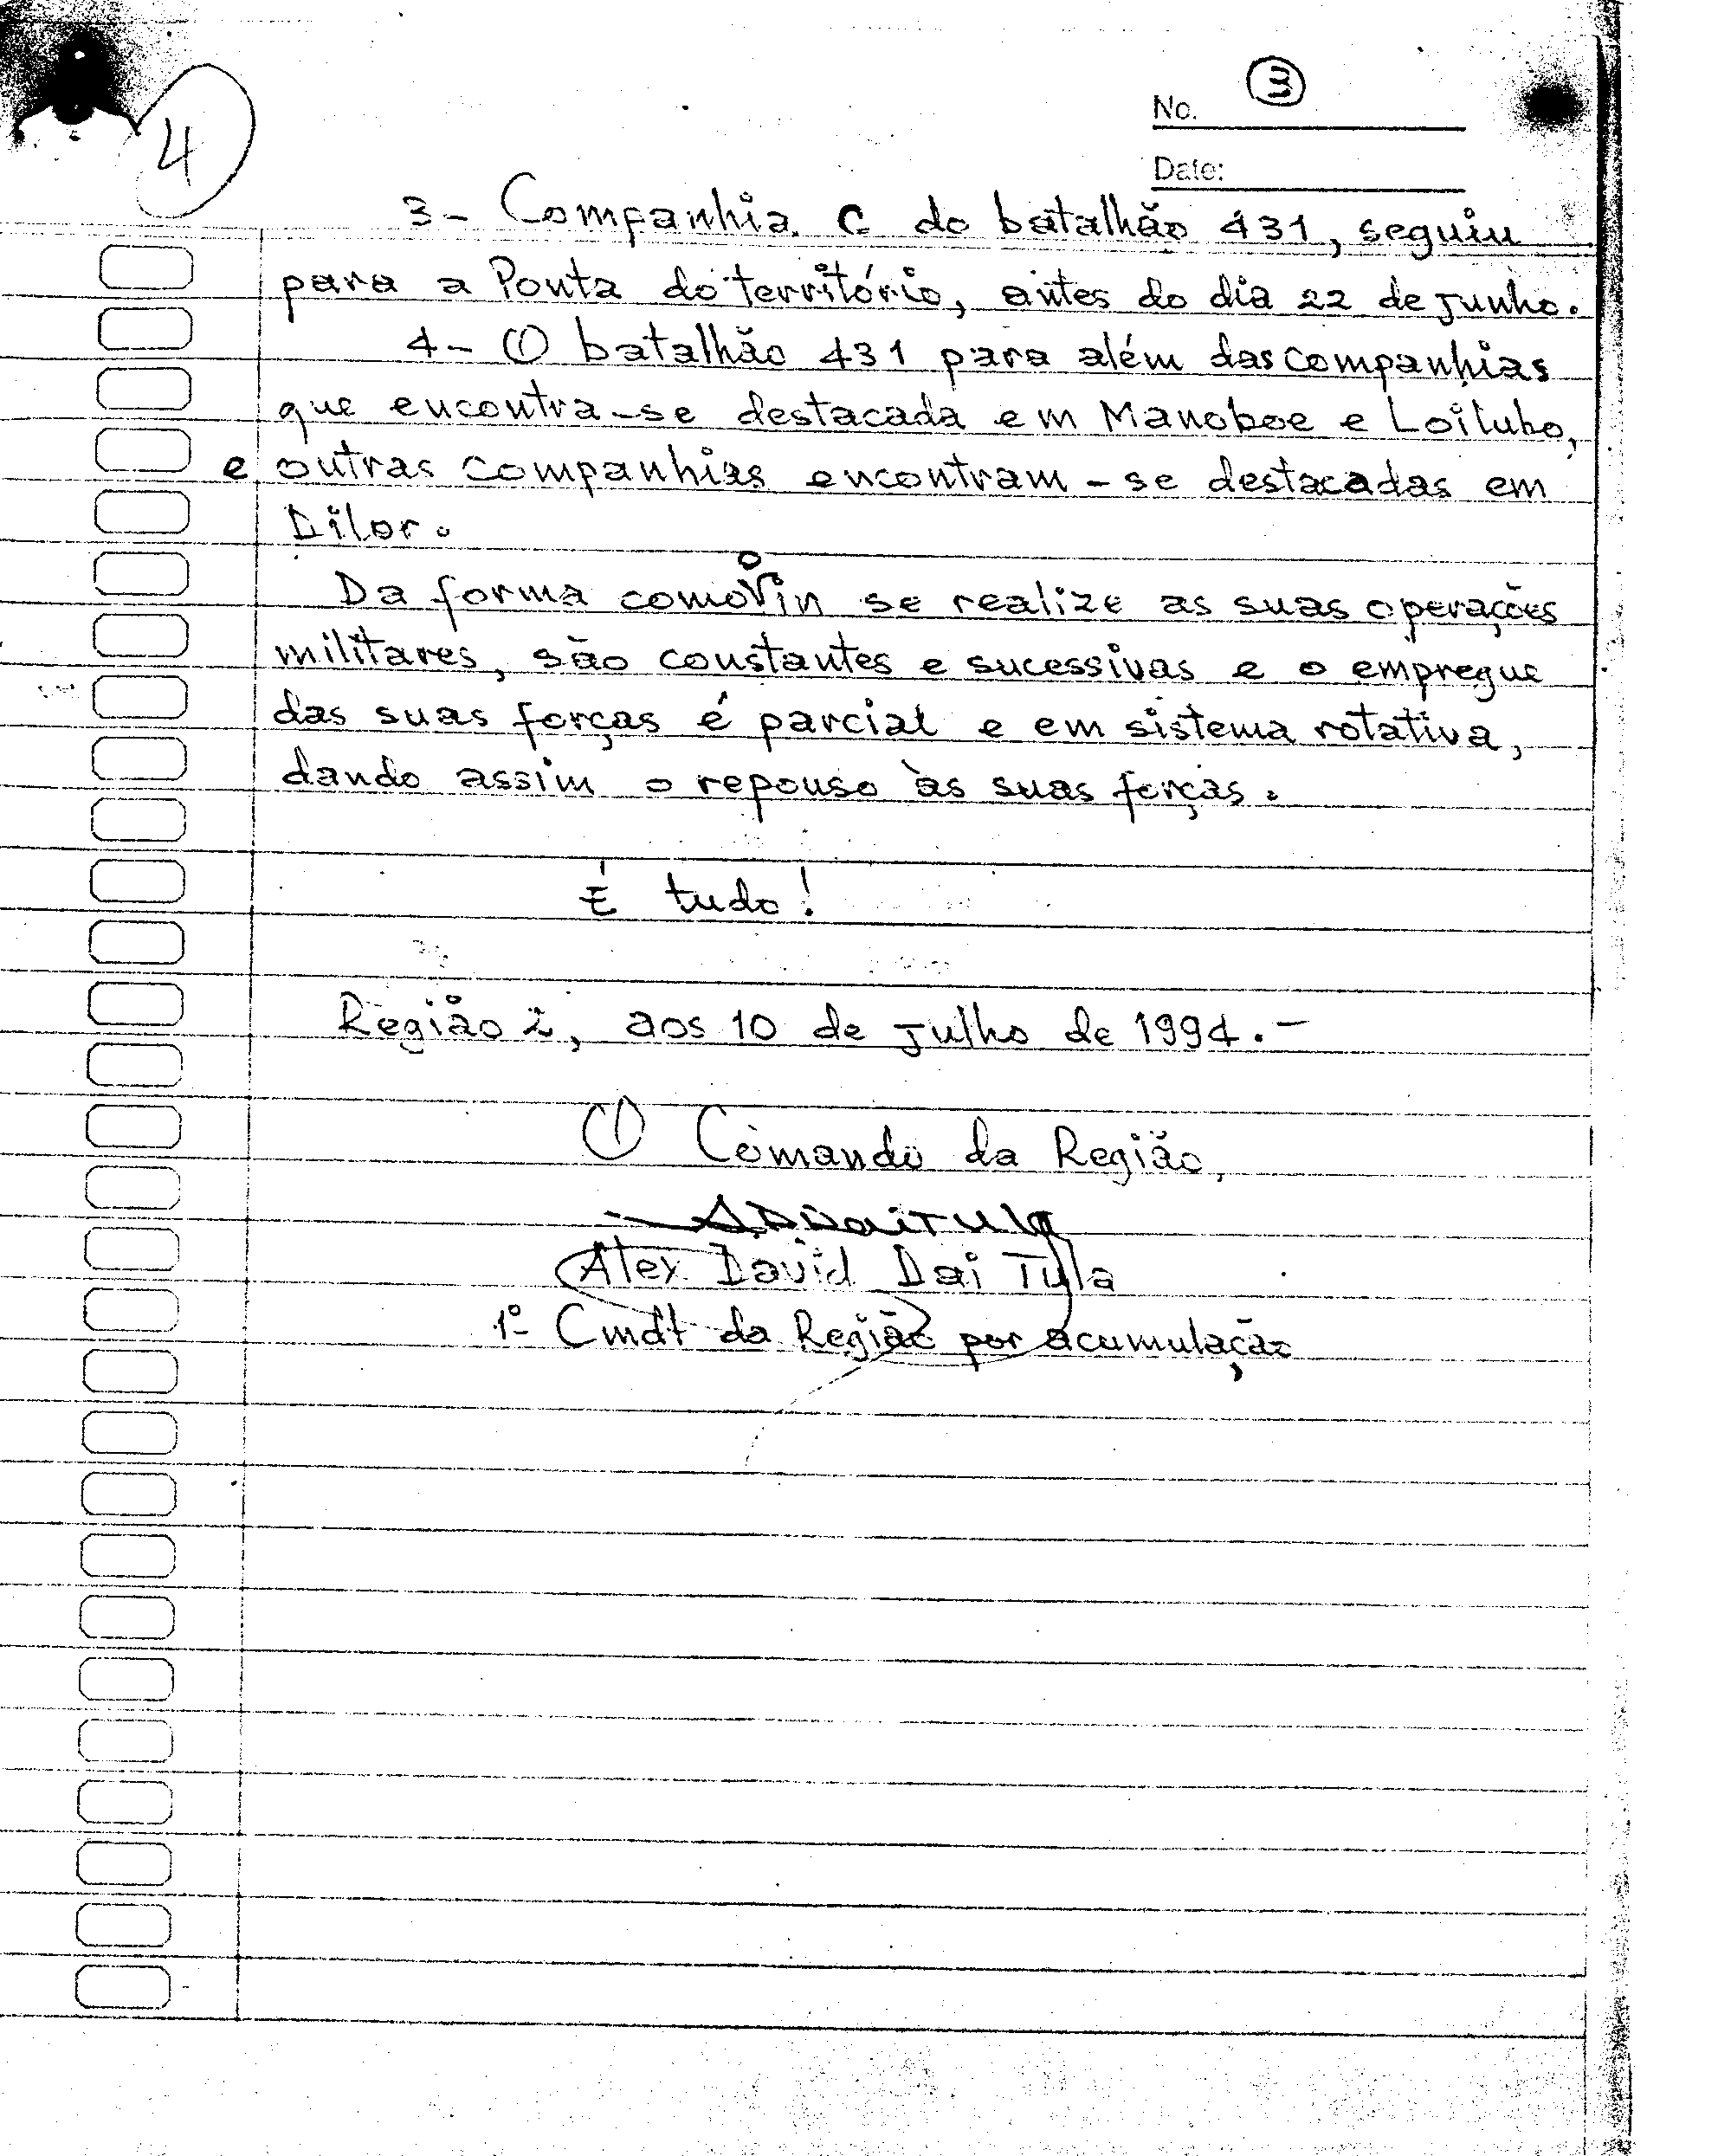 4
No. 3
Date:
3- Companhia C do batalhão 431, seguiu
para a Ponta do território, antes do dia 22 de Junho.
4- O batalhão 431 para além das companhias
que encontra-se destacada em Manoboe e Loilubo,
e outras companhias encontram-se destacadas em
Dilor.
Da forma como o in se realize as suas operações
militares, são constantes e sucessivas e o empregue
das suas forças é parcial e em sistema rotativa,
dando assim o repouso às suas forças.
É tudo!
Região 2, aos 10 de Julho de 1994.-
O Comando da Região,
Alex David Dai Tula
1º Cmdt da Região por acumulação